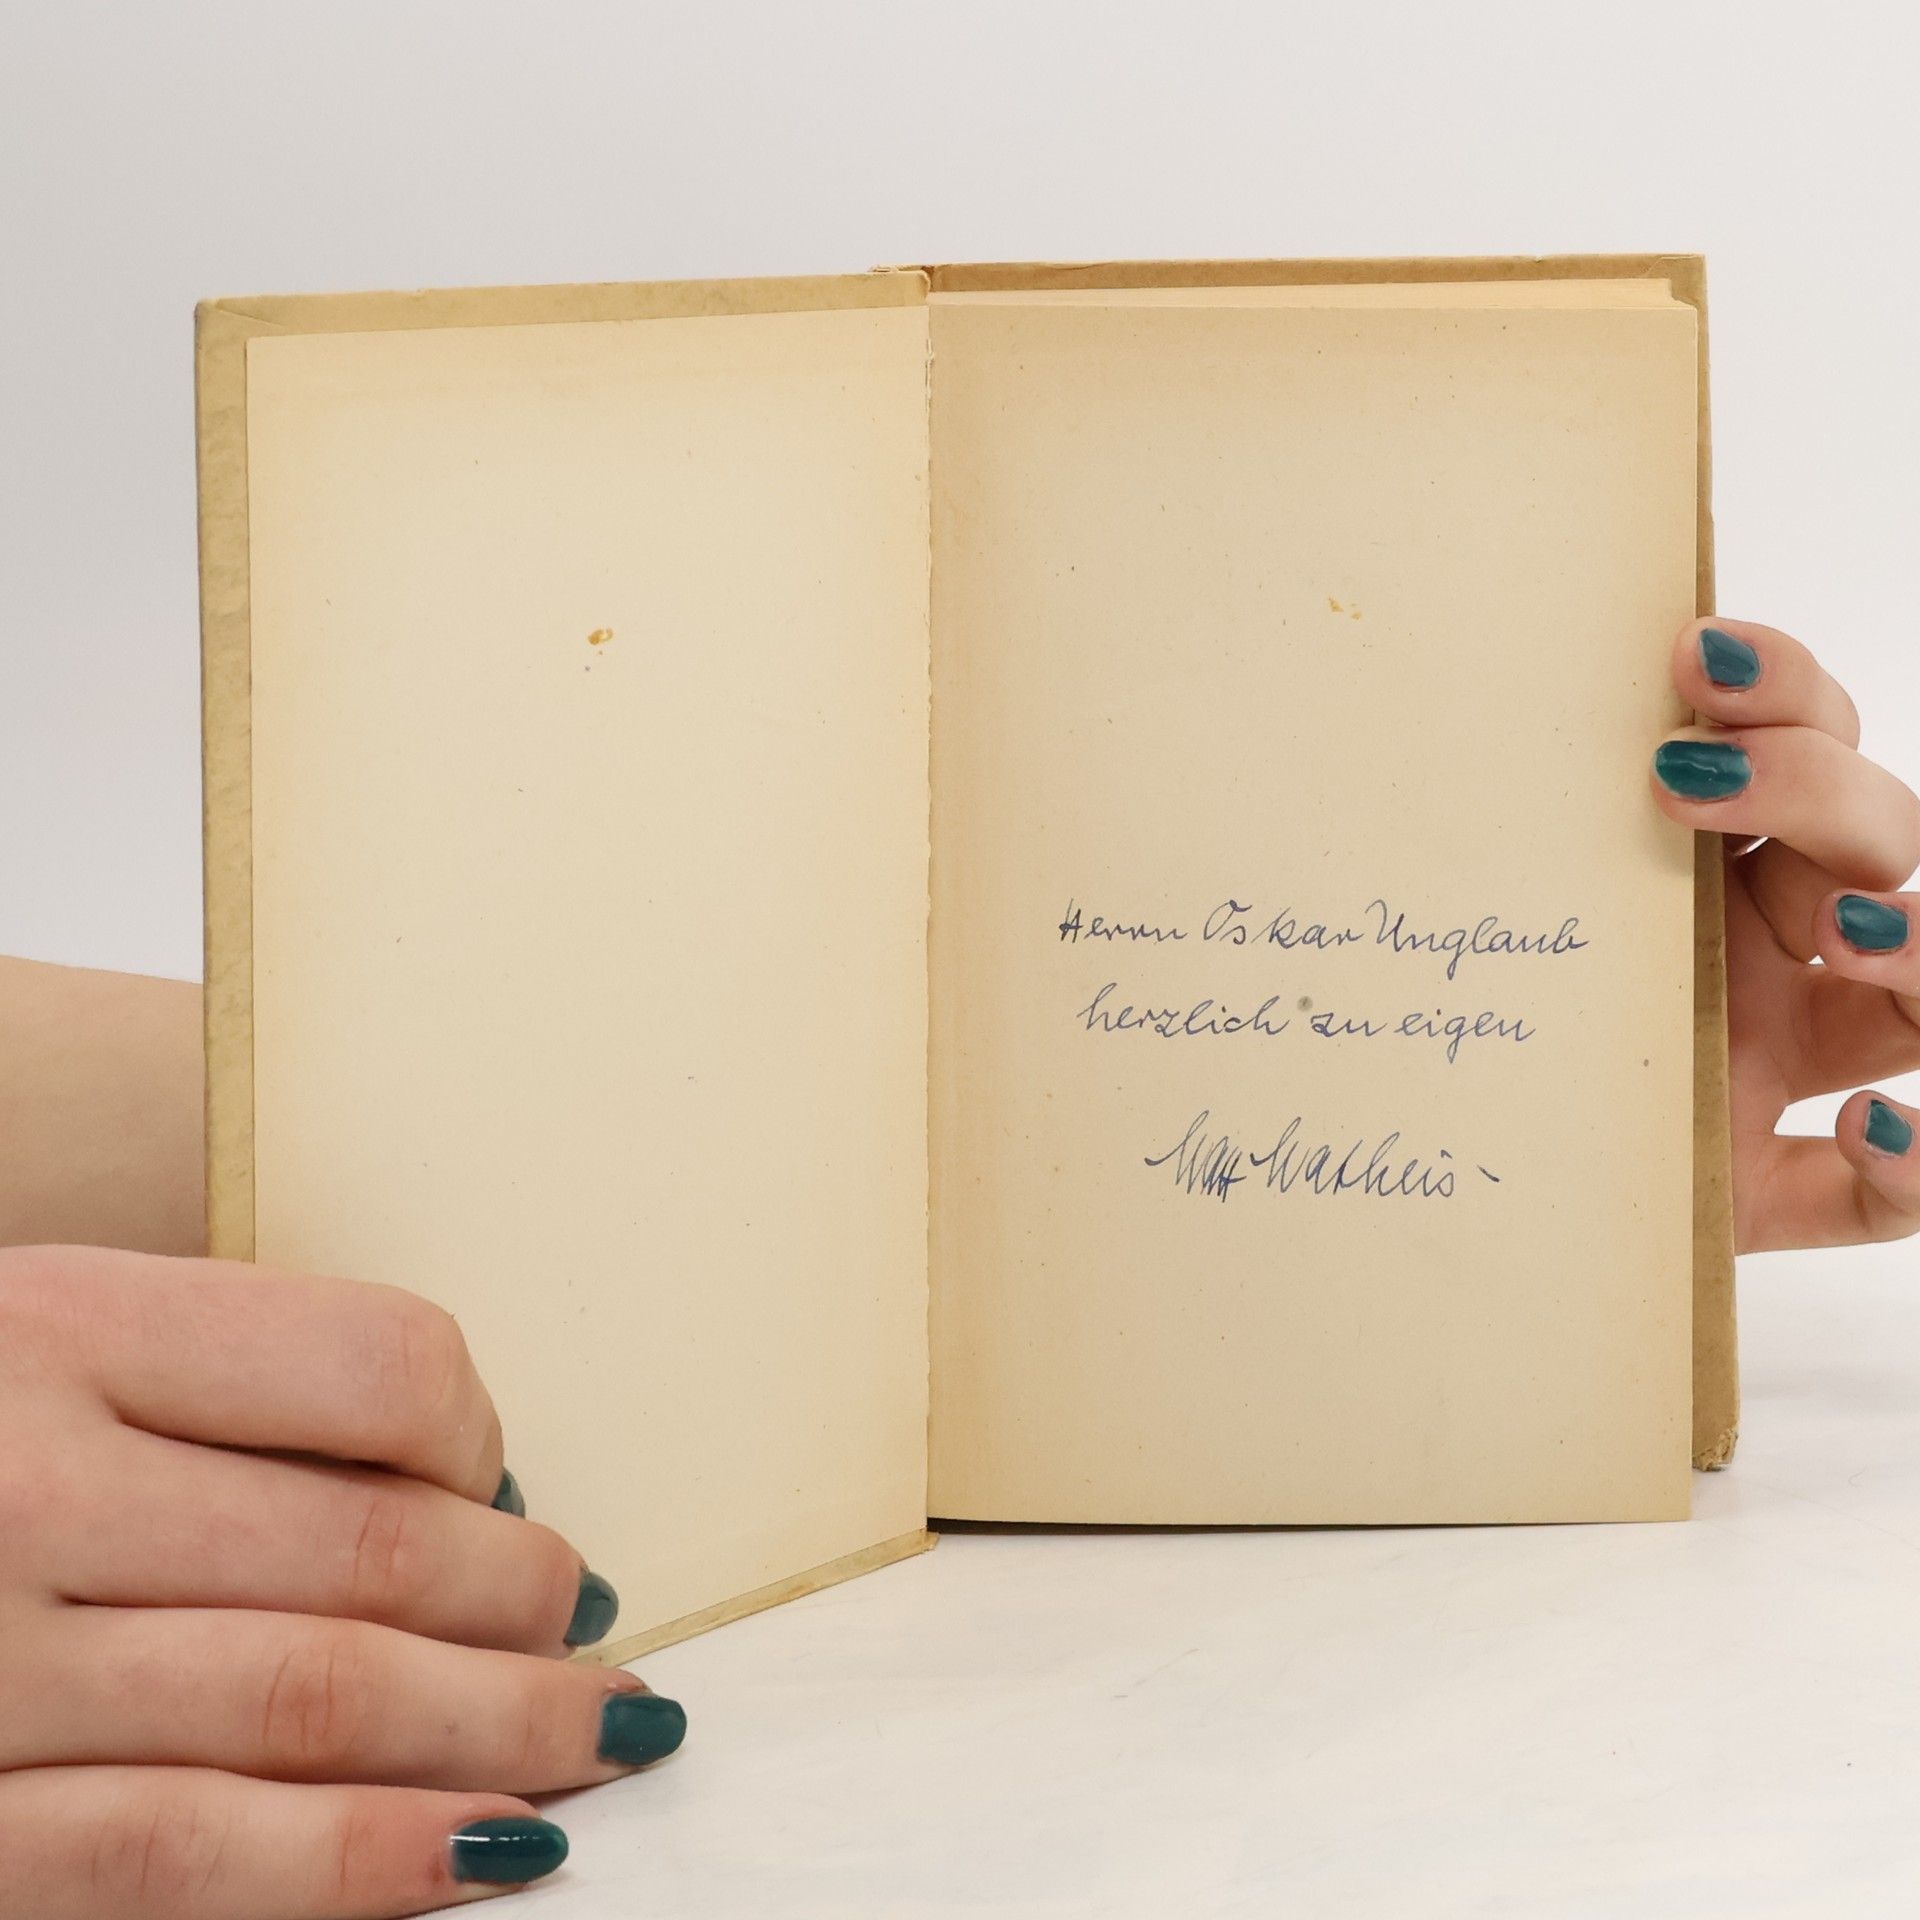 Herrn Oskar Unglaub
herzlich zu eigen
Max Matheis